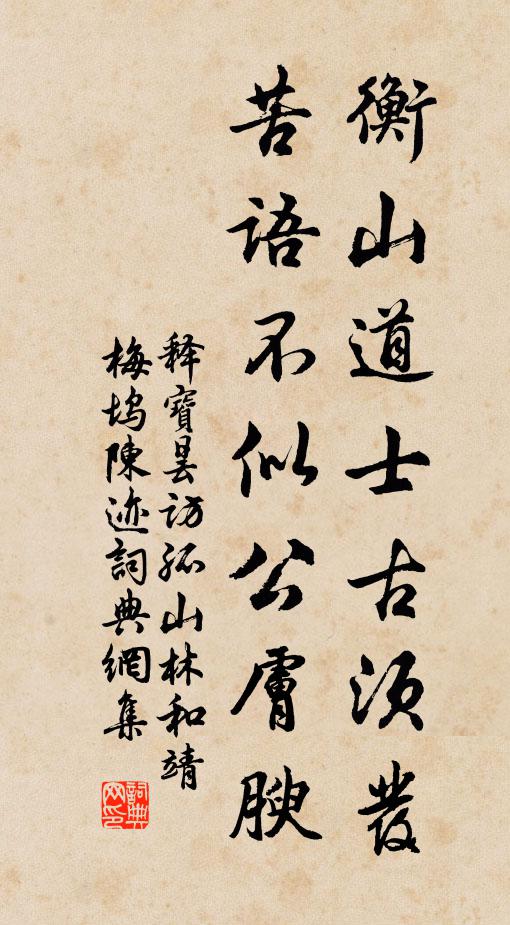 衡山道士古须发
苦语不似公膚腴
释寶昙访孤山林和靖
梅坞陳迹詞典網集
詞典网印